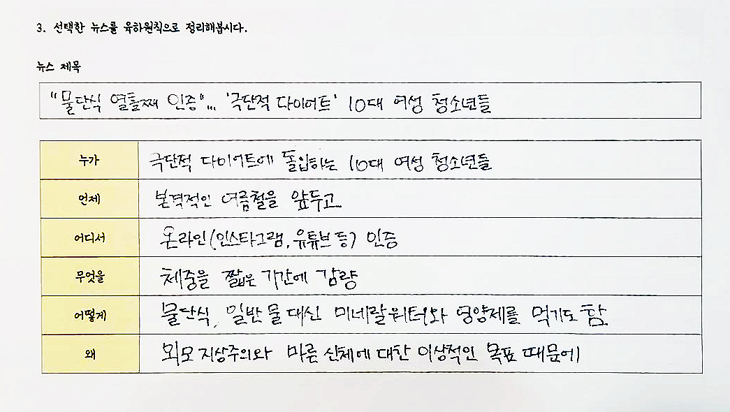 3. 선택한 뉴스를 육하원칙으로 정리해봅시다.
뉴스 제목
"물단식 열흘째 인증"... '극단적 다이어트' 10대 여성 청소년들
누가 극단적 다이어트에 돌입하는 10대 여성 청소년들
언제 본격적인 여름철을 앞두고
어디서 온라인(인스타그램, 유튜브 등) 인증
무엇을 체중을 짧은 기간에 감량
어떻게 물단식, 일반 물 대신 미네랄워터와 영양제를 먹기도 함
왜 외모지상주의와 마른 신체에 대한 이상적인 목표 때문에